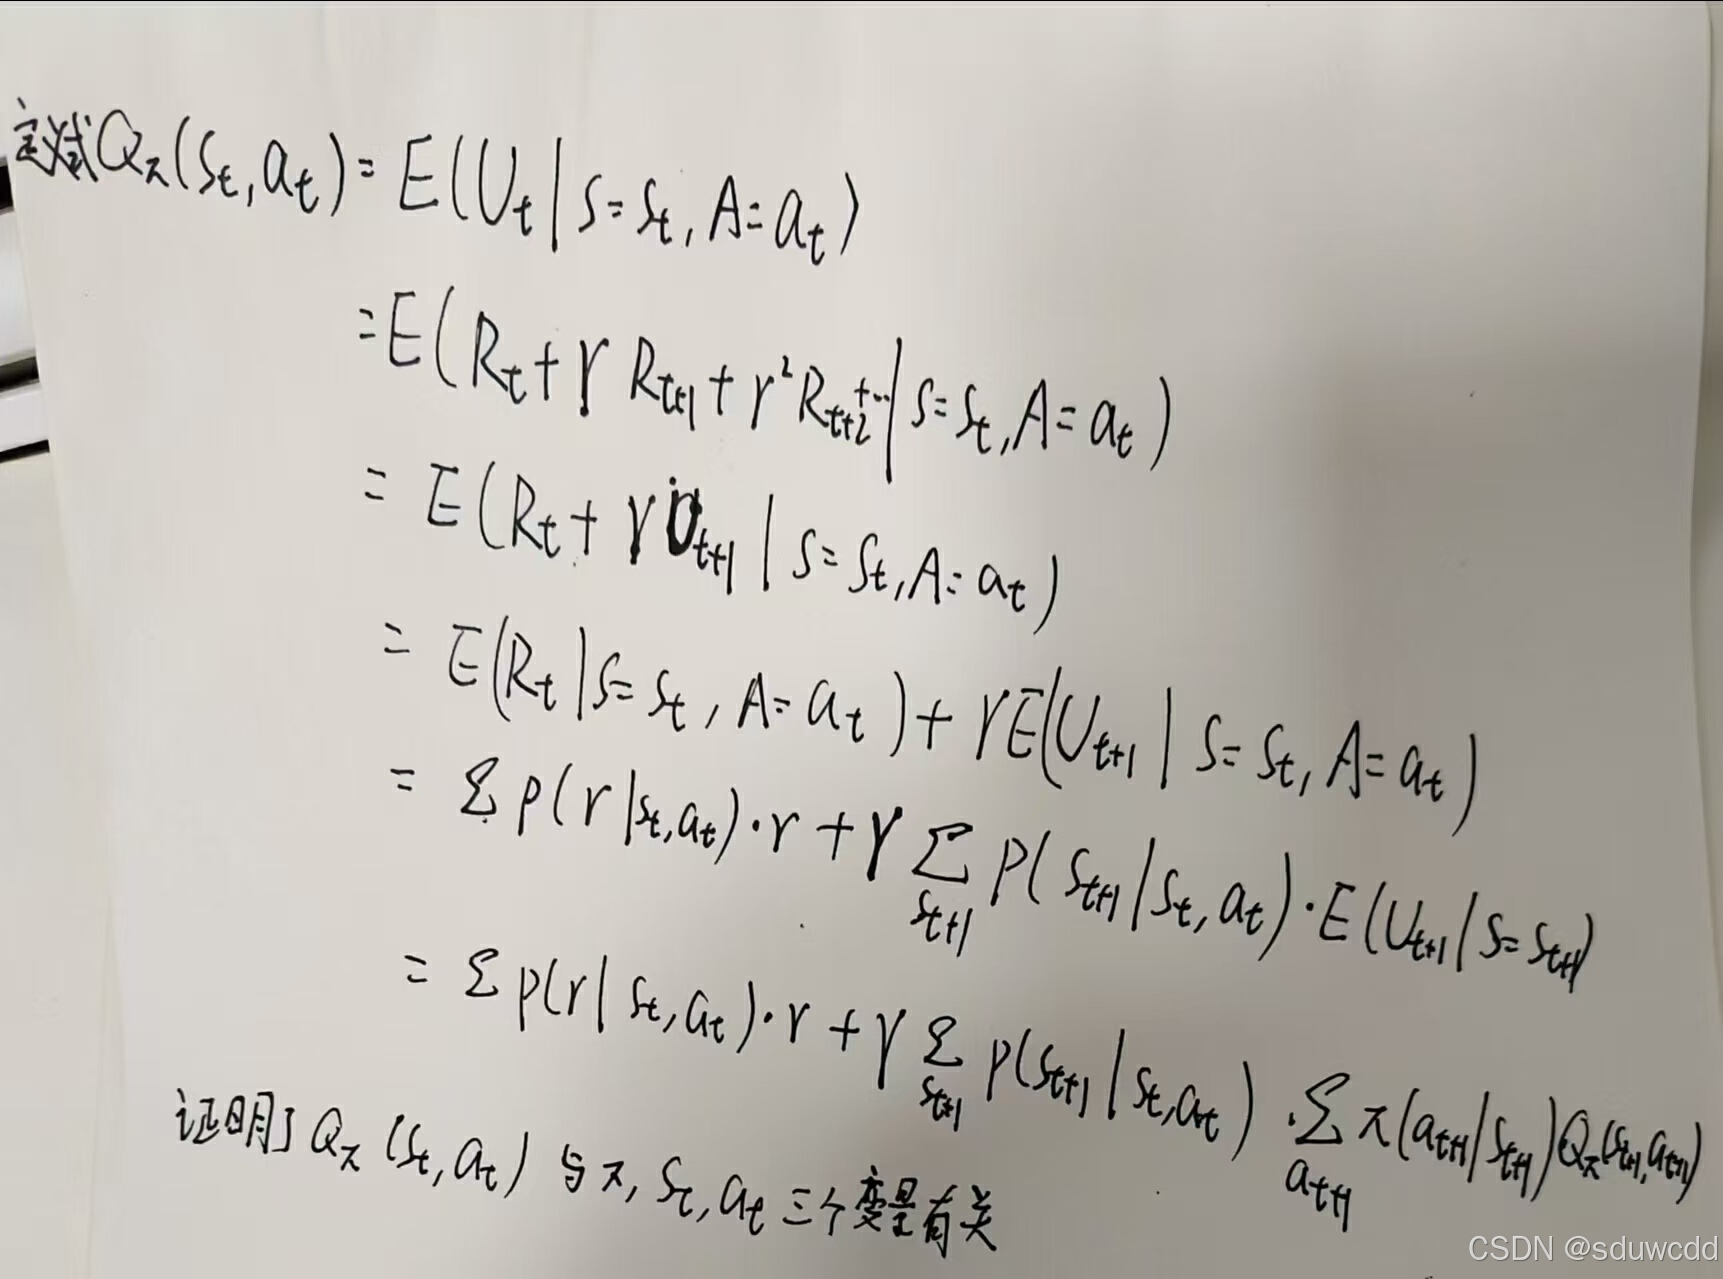 定义式Qπ(St,at)=E(Ut|S=St,A=at)
=E(Rt+γRt+1+γ²Rt+2+…|S=St,A=at)
=E(Rt+γUt+1|S=St,A=at)
=E(Rt|S=St,A=at)+γE(Ut+1|S=St,A=at)
=Σp(r|St,at)·r+γΣSt+1 P(St+1|St,at)·E(Ut+1|S=St+1)
=Σp(r|St,at)·r+γΣSt+1 p(St+1|St,at)·Σat+1 π(at+1|St+1)Qπ(St+1,at+1)
证明了Qπ(St,at)与π,St,at三个变量有关
CSDN @sduwcdd